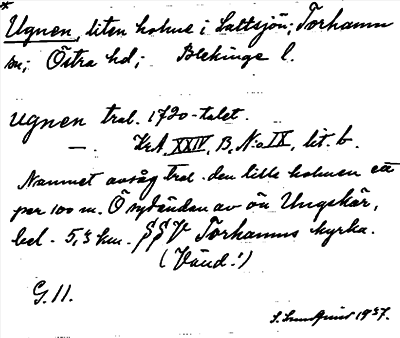 * Ugnen, liten holme i Saltsjön; Torhamn
sn; Östra hd; Blekinge l.
Ugnen trol. 1720-talet.
— KrA. XXIV, B, N:o IX, lit. b.
Namnet avsåg trol. den lilla holmen ett
par 100 m. Ö sydändan av ön Ungskär,
bel. 5,3 km. SSV Torhamns kyrka.
(Vänd!)
G. 11.
S. Lundquist 1937.